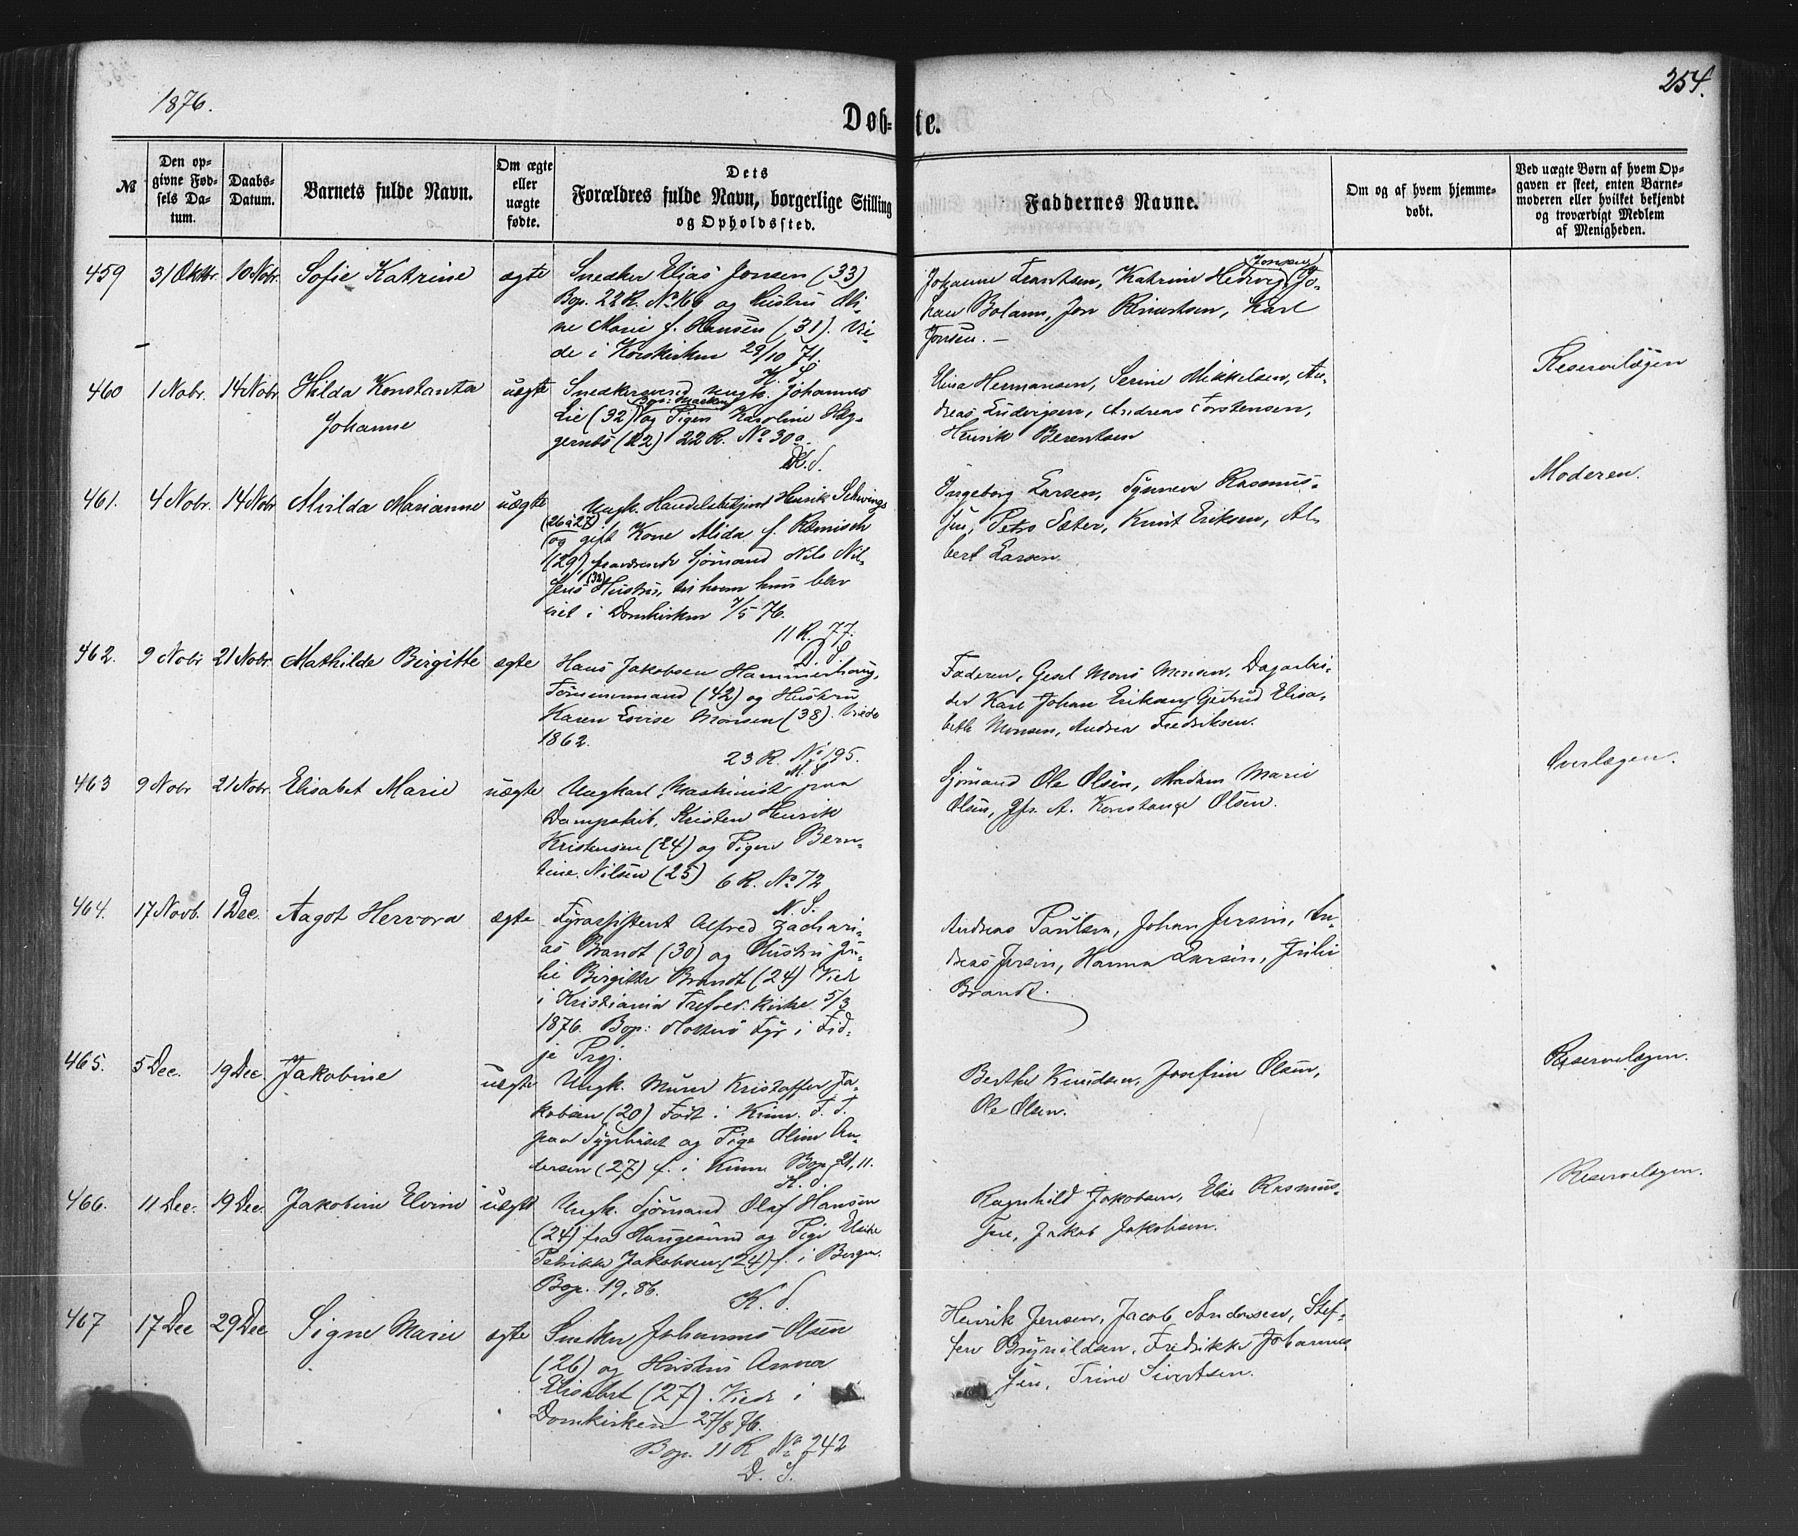 1876.
254.
Døb-te.
№
Den op-
givne Fød-
sels Da-
tum.
Daabs-
Datum.
Barnets fulde Navn.
Om ægte
eller
uægte
fødte.
Dets
Forældres fulde Navn, borgerlige Stilling
og Opholdssted.
Faddernes Navne.
Om og af hvem hjemme-
døbt.
Ved uægte Børn af hvem Op-
gaven er skeet, enten Barne-
moderen eller hvilket bekjendt
og troværdigt Medlem
af Menigheden.
459 31 Oktbr. 10 Novbr. Sofie Katrine ægte
Snedker Elias Jonsen (33)
Bop. 22 R. No 166 og Hustru Mi-
ne Marie f. Hansen (31). Vi-
de i Korskirken 29/10 71.
K. S.
Johanne Frantsen, Katrine Hedvig Jonsen, Jo-
han Bolann, Jon Rinertsen, Karl
Jonsen. —
460 1 Nobr. 14 Nobr. Hilda Konstanta
Johanne
uægte
Snedkersvend ungk. Johannes
Lie (32) og Pigen Karoline Hæg-
gernes (22) 22 R. No 30a.
K. S.
Elisa Hermansen, Serine Mikkelsen, An-
dreas Ludvigsen, Andreas Torstensen,
Henrik Berentsen
Reservelægen
461. 4 Nobr. 14 Nobr Milda Marianne uægte
Ungk. Handelsbetjent Henrik Schwings
(26 à 27)
og gift Kone Alida f. Ræmisch
(29), fraværende Sjømand Nils Nil-
sens (32) Hustru, til hvem hun blev
viet i Domkirken 7/5 76.
11 R. 77.
D. S.
Ingeborg Larsen, Synneva Rasmus-
sen, Petro Sæter, Knut Eriksen, Al-
bert Larsen.
Moderen.
462. 9 Nobr 21 Nobr. Mathilde Birgitte ægte
Hans Jakobsen Hammerhaug,
Tømmermand (42) og Hustru
Karen Lovise Monsen (38). Viede
1862.
23 R. No 195.
M. S.
Faderen, Gesel Mons Monsen, Dagarbei-
der Karl Johan Eriksen, Gertrud Elisa-
beth Monsen, Andrea Fredriksen.
463 9 Nobr 21 Nobr. Elisabet Marie uægte
Ungkarl Maskinist paa
Dampskib, Kristen Henrik
Kristensen (24) og Pigen Bern-
tine Nilsen (25) 6 R. No 72
N. S.
Sjømand Ole Olsen, Madam Marie
Olsen, Jfr. A. Konstanse Olsen.
Overlægen.
464. 17 Novb. 1 Dec. Aagot Hervora ægte
Fyrassistent Alfred Zachari-
as Brandt (30) og Hustru Ju-
lie Birgitte Brandt (24) Vied
i Kristiania Trefold. Kirke 5/3
1876. Bop: Holtenø Fyr i Fid-
je Prgj.
Andreas Paulsen, Johan Jersin, An-
dreas Jersin, Hanna Larsen, Julie
Brandt.
465. 5 Dec. 19 Dec. Jakobine uægte
Ungk. Murer Kristoffer Ja-
kobsen (20) Født i Kinn. F. T.
paa Sygehuset og Pige Oline An-
dersen (27) f. i Kinn Bop. 21, 11.
K. S.
Berthe Knudsen, Josefine Olsen,
Ole Olsen.
Reservelægen.
466. 11 Dec. 19 Dec. Jakobine Elvine uægte
Ungk. Sjømand Olaf Hansen
(24) fra Haugesund og Pige Ulrike
Petrikke Jakobsen (24) f. i Bergen.
Bop. 19, 86.
K. S.
Ragnhild Jakobsen, Elise Rasmus-
sen, Jakob Jakobsen.
Reservelægen.
467 17 Dec 29 Dec Signe Marie ægte
Snedker Johannes Olsen
(26) og Hustru Anna
Elisabet (27). Viede i
Domkirken 27/8 76.
Bop. 11 R. No 242
D. S.
Henrik Jensen, Jacob Andersen, Stef-
fen Brynildsen, Fredrikke Johannes-
sen, Trine Sivertsen.